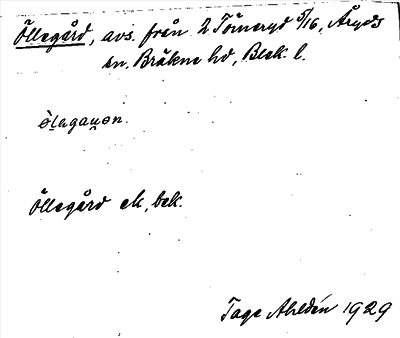 Öllegård, avs. från 2 Törneryd 5/16, Åryds
sn, Bräkne hd, Blek. l.
öl̥agau̯ən.
Öllegård ek, bek.
Tage Ahldén 1929